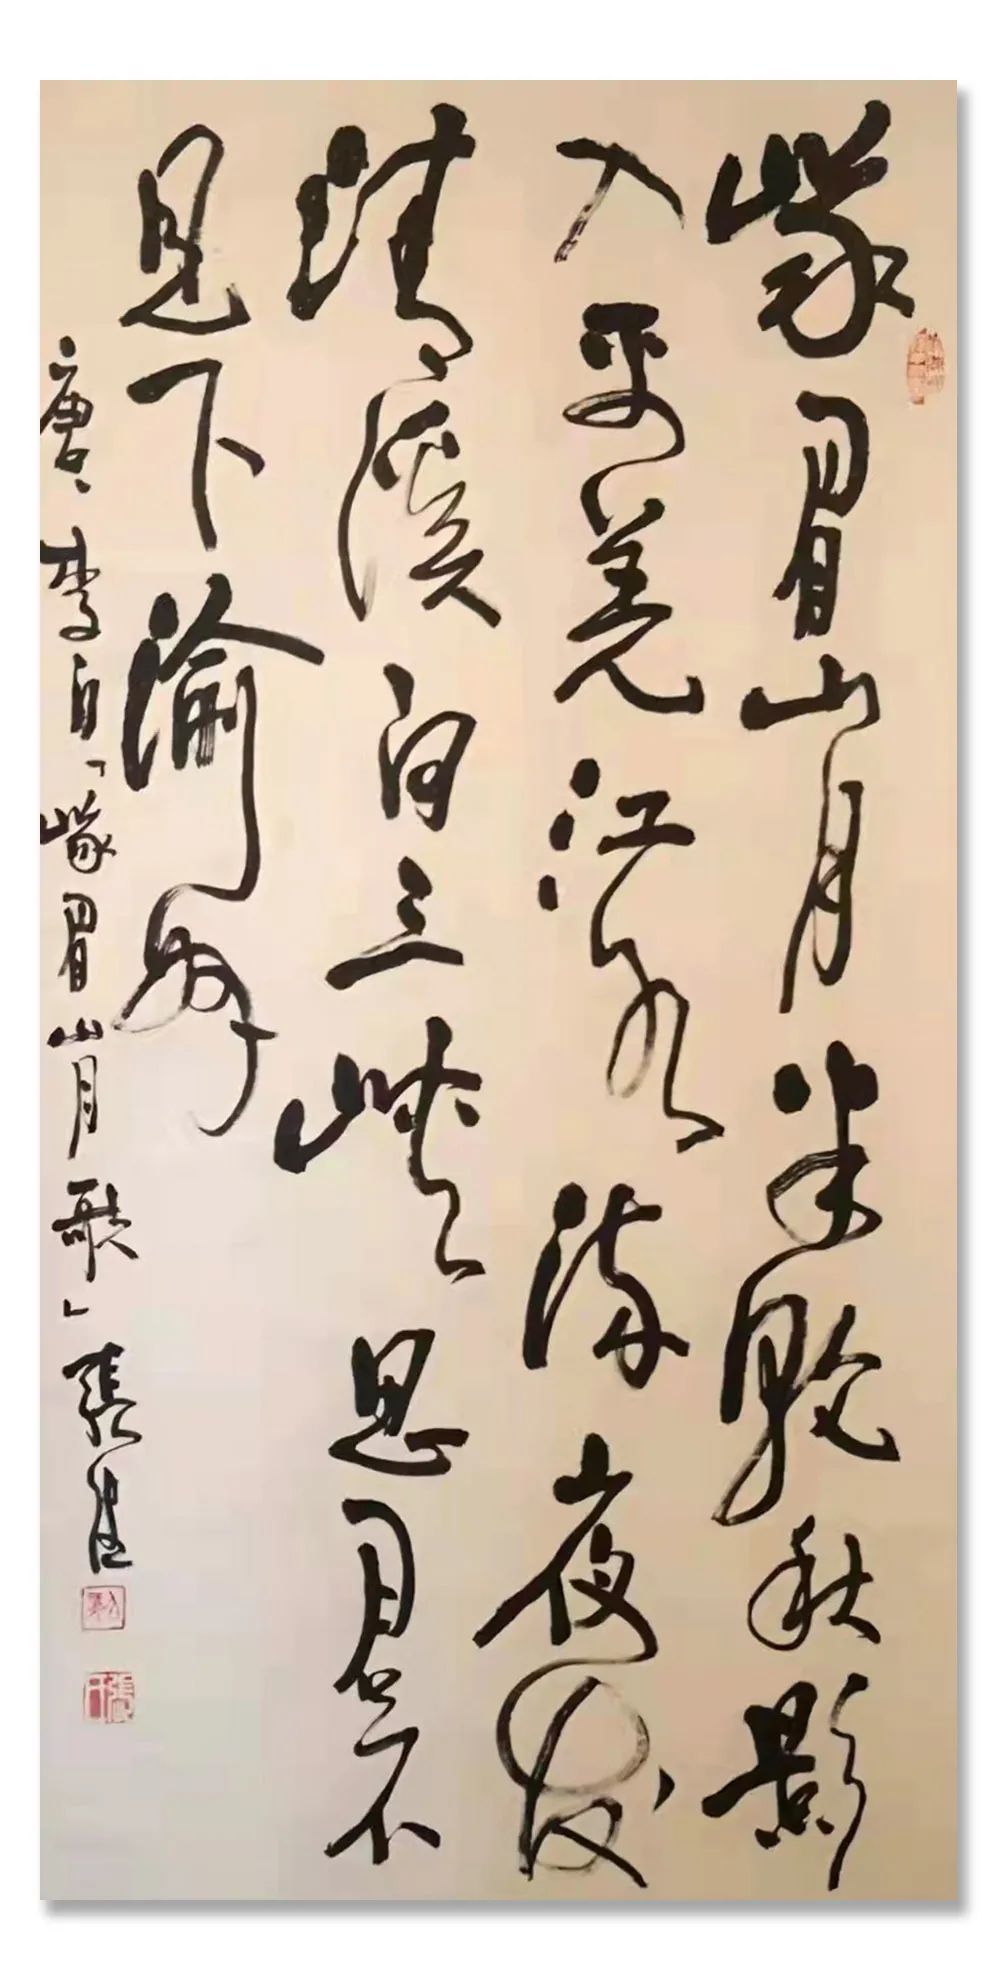 峨眉山月半輪秋影
入平羌江水流夜發
清溪向三峽思君不
見下渝州
唐、李白「峨眉山月歌」張